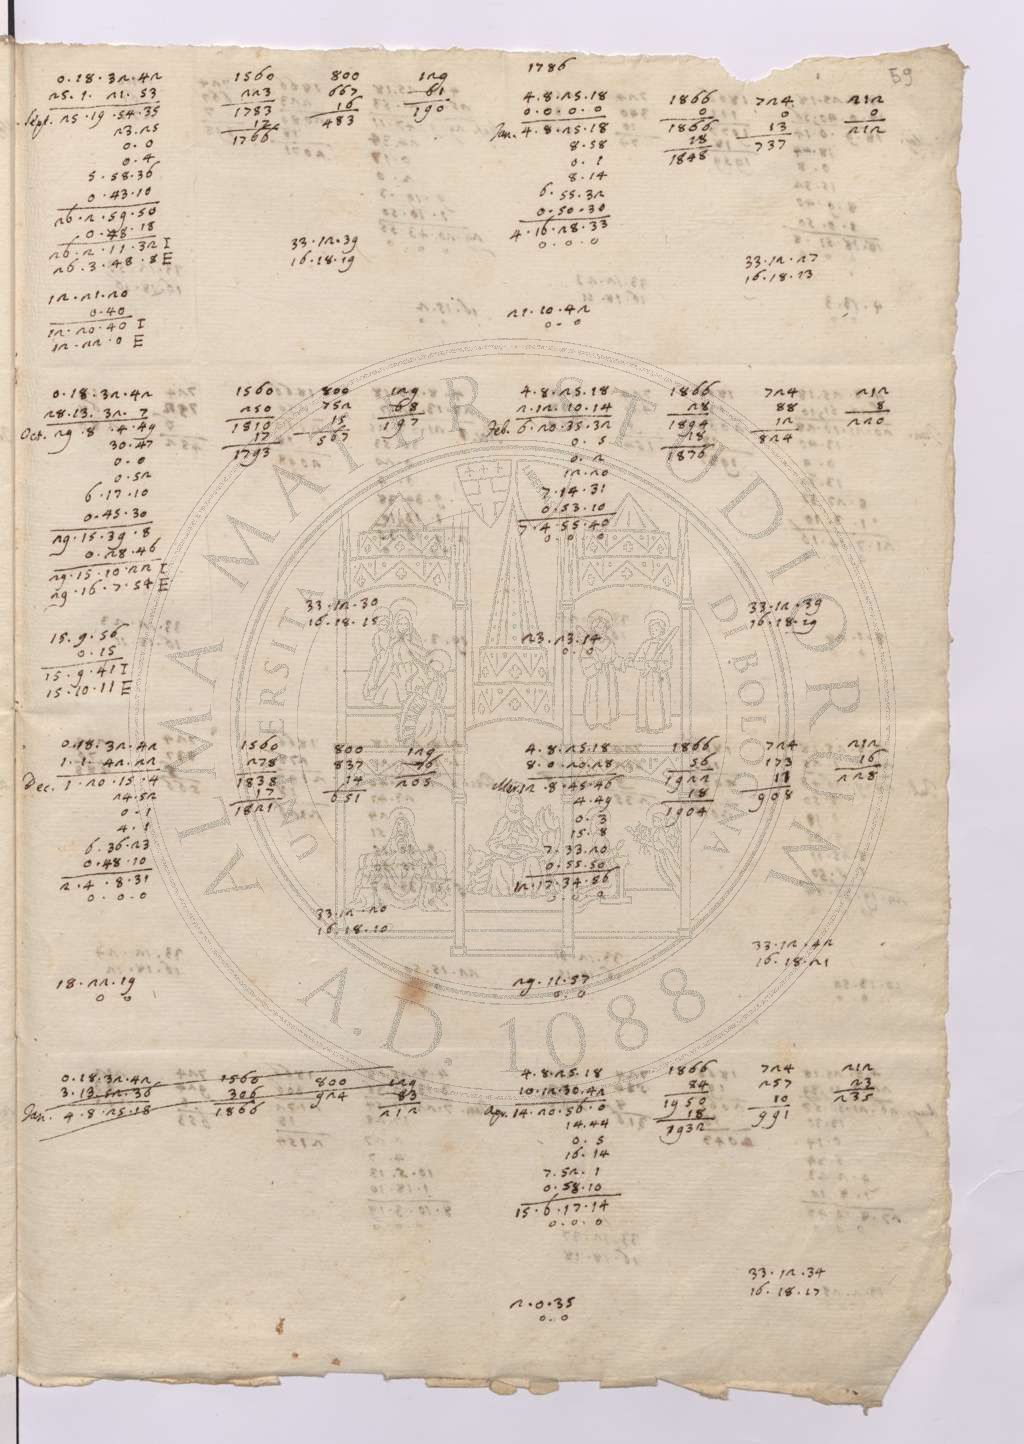 59
0.18.32.42 1560 800 129
25.1.21.53 223 667 61
Sept. 25.19.54.35 1783 16 190
23.25 17 483
0.0 1766
0.4
5.58.36
0.43.10
26.2.59.50
0.48.18
26.2.11.32 I
26.3.48.8 E
33.12.39
16.18.19
12.21.20
0.40
12.20.40 I
12.22.0 E
0.18.32.42 1560 800 129
28.13.32.7 250 752 68
Oct. 29.8.4.49 1810 15 197
30.47 17 567
0.0 1793
0.52
6.17.10
0.45.30
29.15.39.8
0.28.46
29.15.10.22 I
29.16.7.54 E
33.12.30
16.18.15
15.9.56
0.15
15.9.41 I
15.10.11 E
0.18.32.42 1560 800 129
1.1.42.22 278 837 76
Dec. 1.20.15.4 1838 14 205
24.52 17 651
0.1 1821
4.1
6.36.23
0.48.10
2.4.8.31
0.0.0
33.12.20
16.18.10
18.22.19
0 0
0.18.32.42 1560 800 129
3.13.52.36 306 924 83
Jan. 4.8.25.18 1866 212
1786
4.8.25.18 1866 724 212
0.0.0.0 0 0 0
Jan. 4.8.25.18 1866 13 212
8.58 18 737
0.1 1848
8.14
6.55.32
0.50.30
4.16.28.33
0.0.0
33.12.27
16.18.13
21.10.42
0.0
4.8.25.18 1866 724 212
2.12.10.14 28 88 8
Feb. 6.20.35.32 1894 12 220
0.5 18 824
0.2 1876
12.20
7.14.31
0.53.10
7.4.55.40
0.0.0
33.12.39
16.18.19
23.23.14
0.0
4.8.25.18 1866 724 212
8.0.20.28 56 173 16
Mar. 12.8.45.46 1922 11 228
4.49 18 908
0.3 1904
15.8
7.33.20
0.55.50
12.17.34.56
0.0.0
33.12.42
16.18.21
29.11.57
0.0
4.8.25.18 1866 724 212
10.12.30.42 84 257 23
Apr. 14.20.56.0 1950 10 235
14.44 18 991
0.5 1932
16.14
7.52.1
0.58.10
15.6.17.14
0.0.0
33.12.34
16.18.17
2.0.35
0.0
ALMA MATER STUDIORUM
UNIVERSITÀ DI BOLOGNA
A.D. 1088